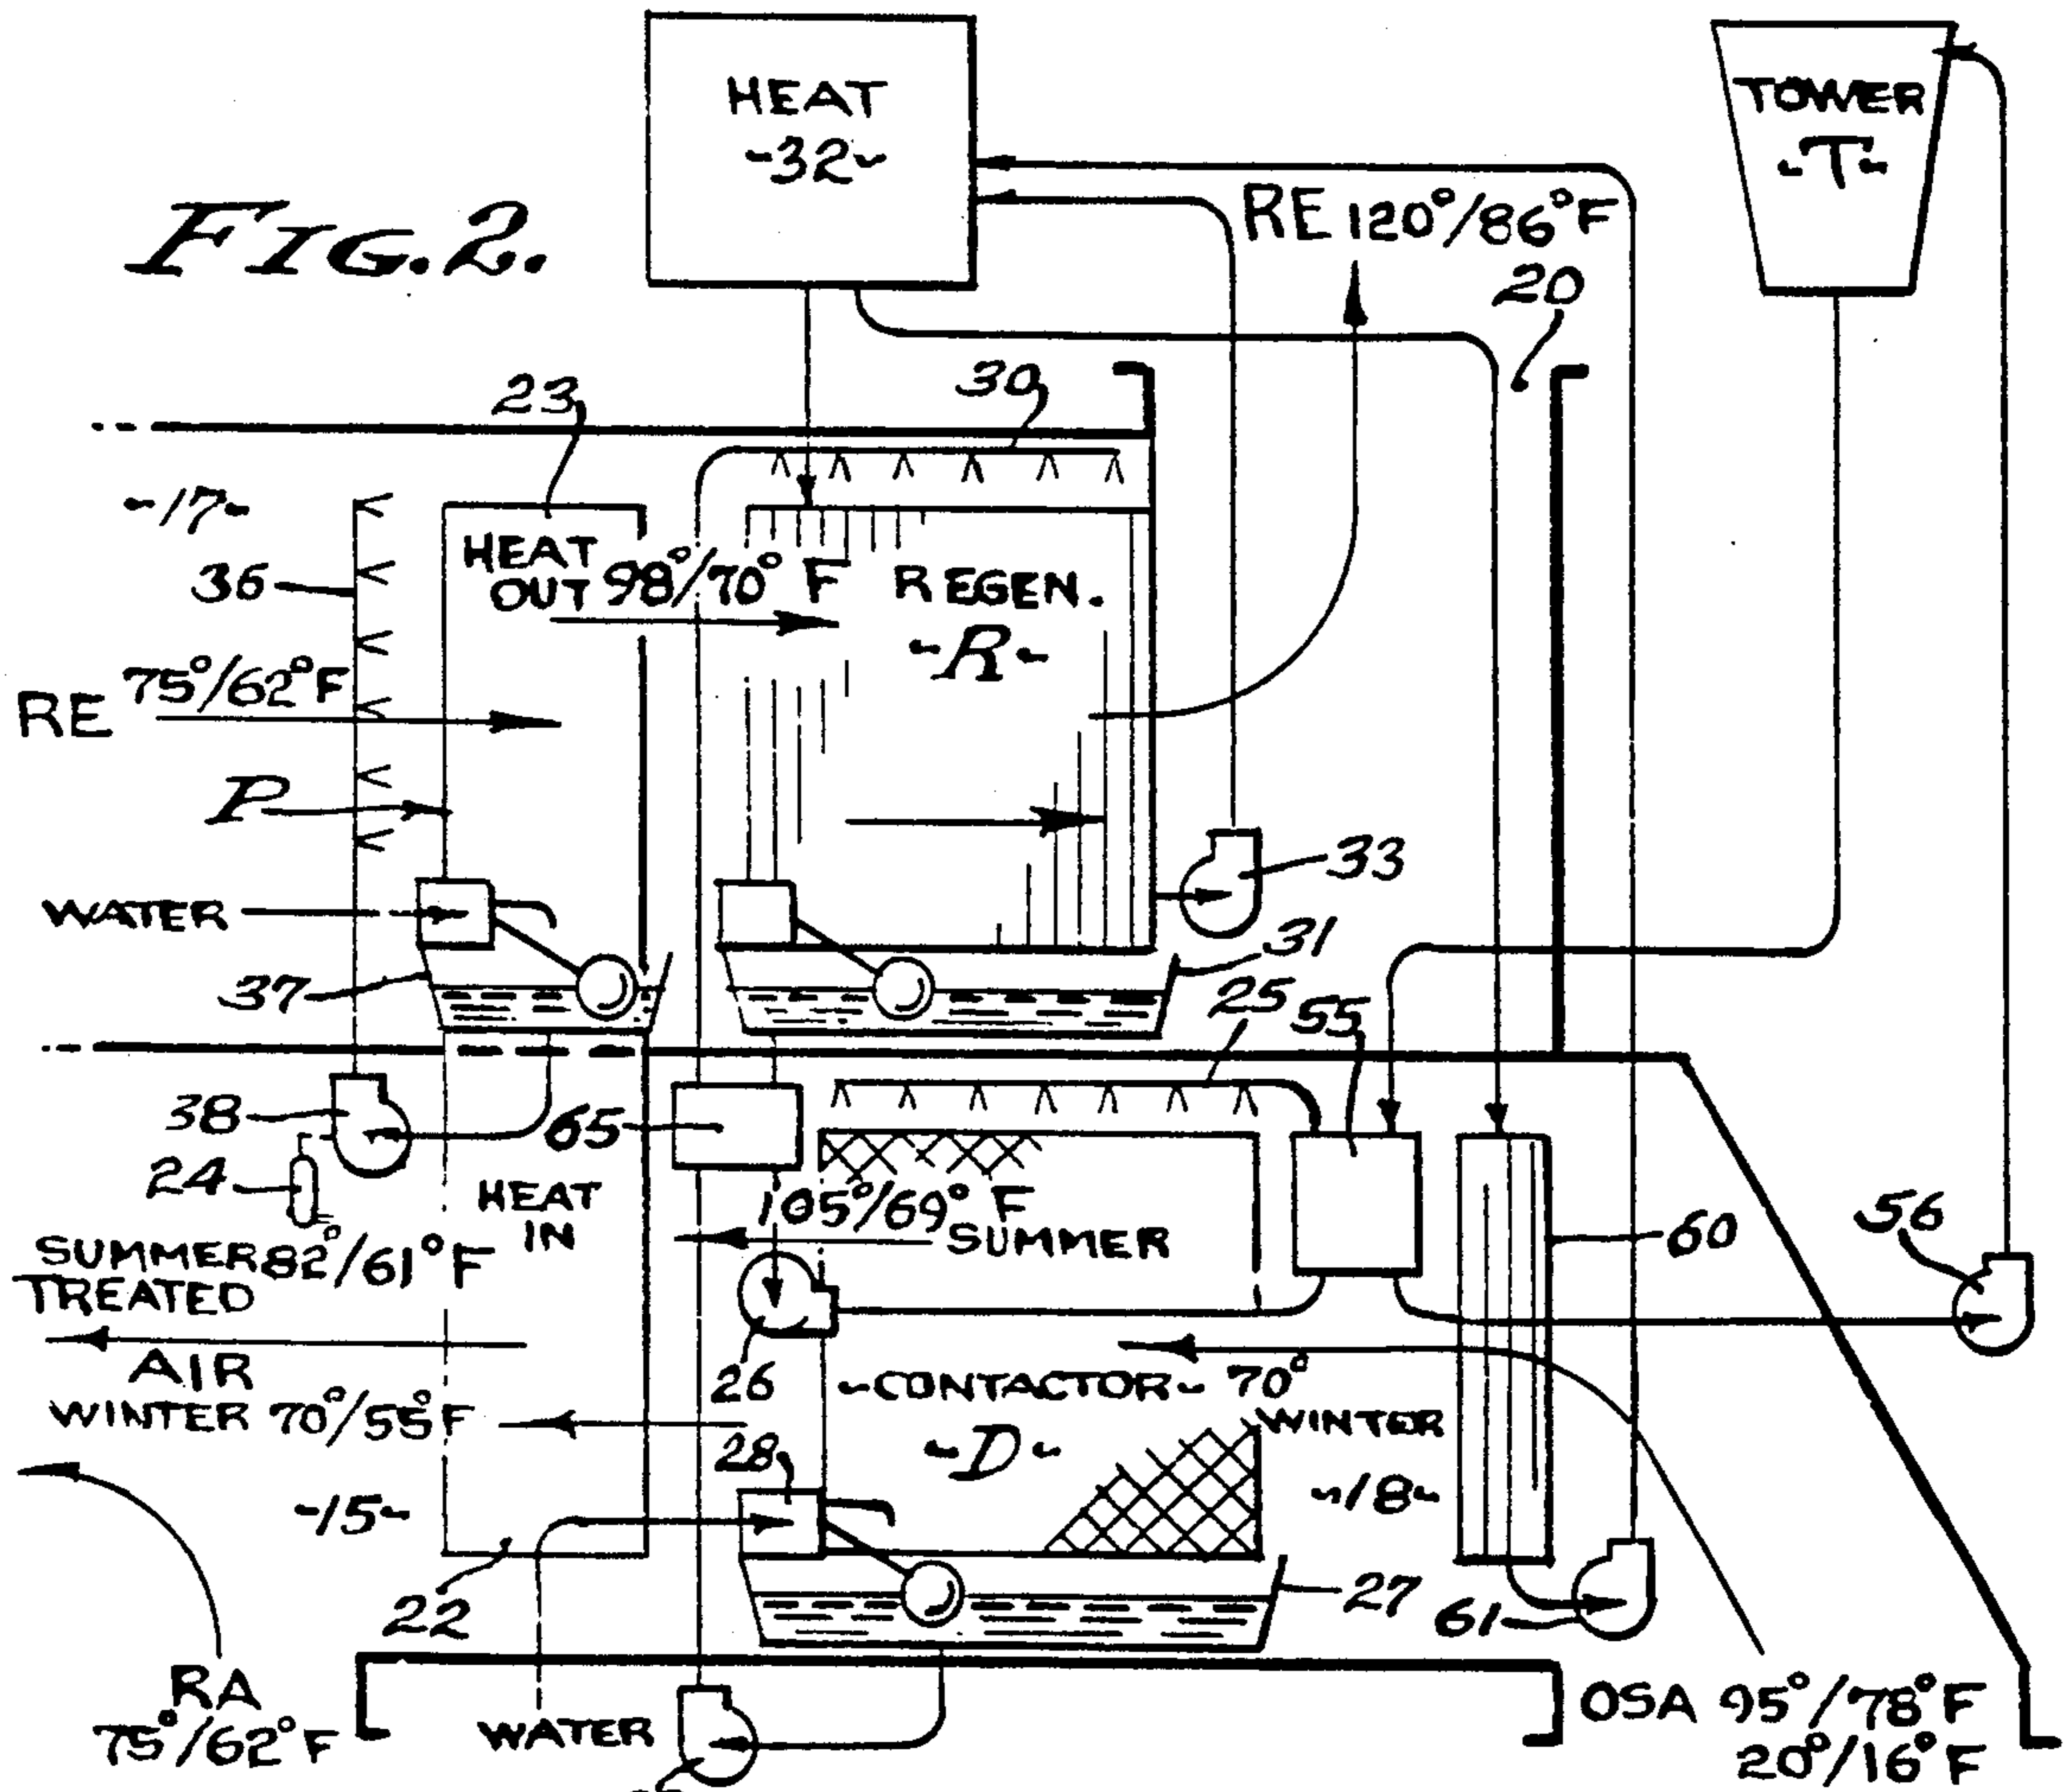 HEAT
-32-
TOWER
-T-
FIG. 2.
RE 120°/86°F
20
23
30
-17-
36
HEAT
OUT 98°/70° F
REGEN.
-R-
75°/62°F
RE
P
33
WATER
31
37
25
55
38
65
24
HEAT
IN
105°/69° F
SUMMER
56
60
SUMMER 82°/61°F
TREATED
AIR
26
-CONTACTOR- 70°
WINTER 70°/55°F
WINTER
-D-
28
-15-
-18-
22
27
61
RA
75°/62°F
WATER
OSA 95°/78°F
20°/16°F